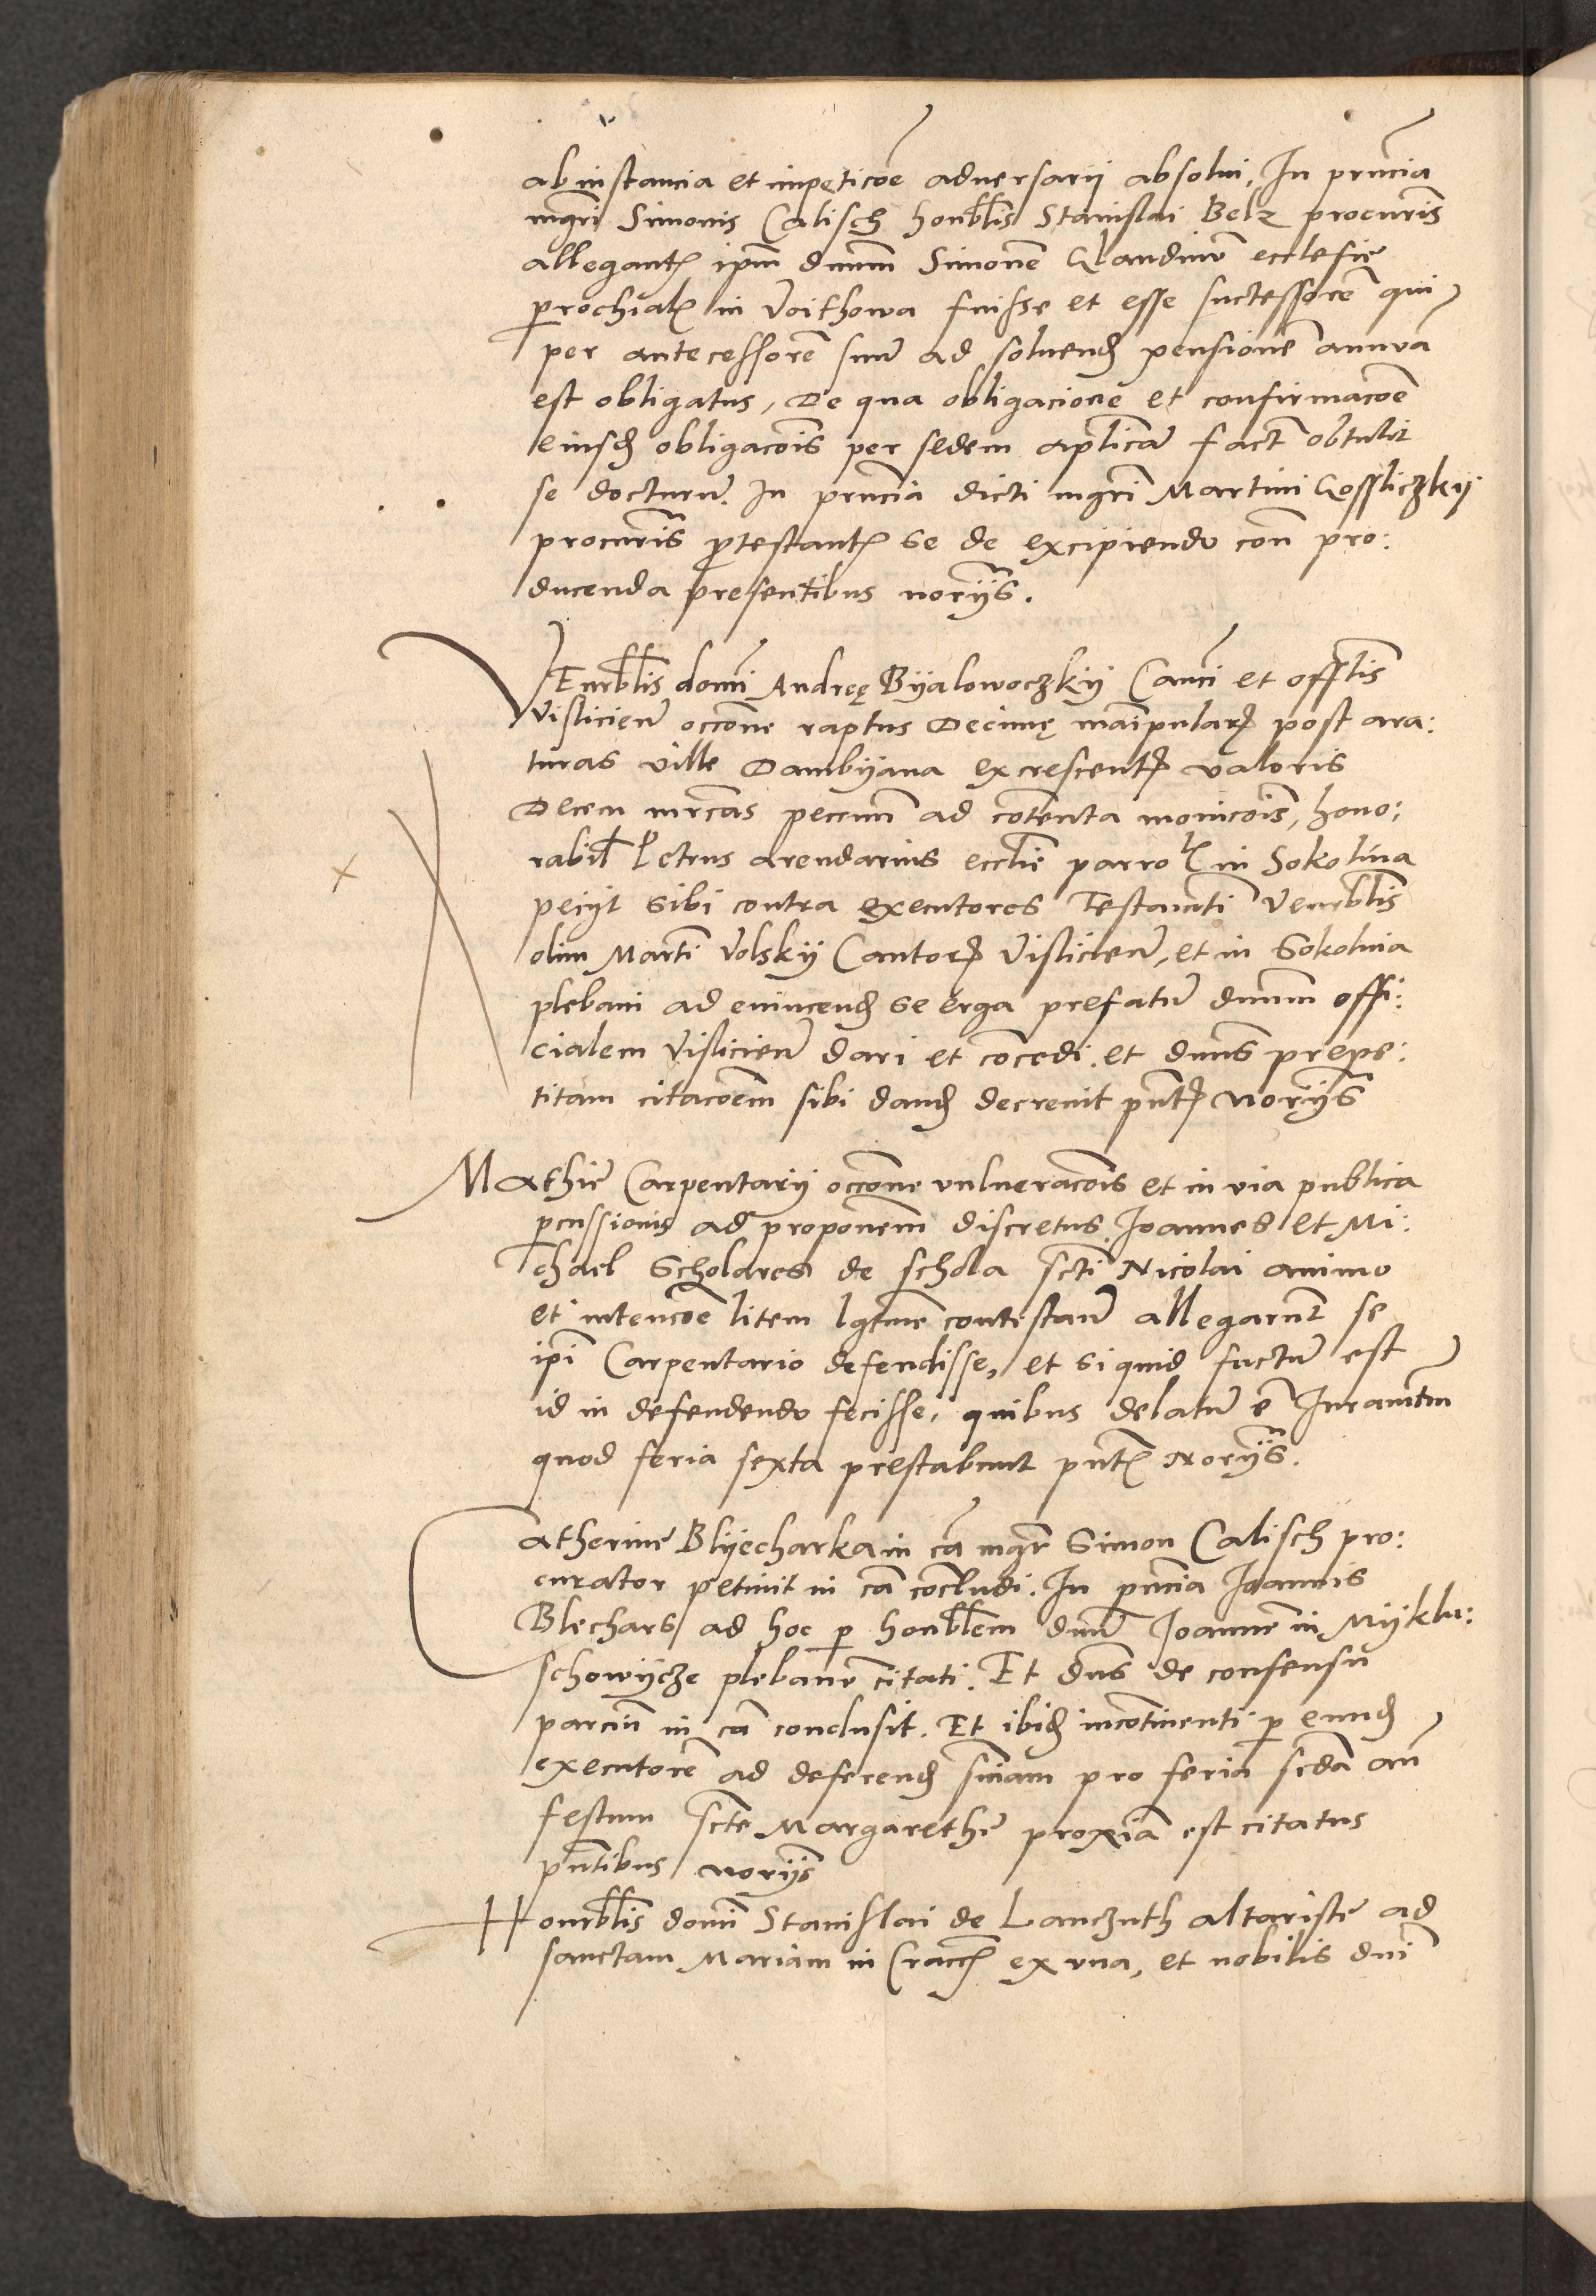 ab instancia et impeticoe adversarii absolui, In prncia
mgri Simonis Calisch honblis Stanislai Belz procuris
allegant ipm dnum Simonem ecclesie
prochial in Voithowa fuisse et esse successore qui
per antecessore suu ad soluend pensione annua
est obligatus, De qua obligacione et confirmacoe
eiusd obligacois per sedem aplica fact obtulit
se docturu. In prncia dicti mgri Martini Gossliczkij
procuris protestant se de excipiendo con pro:
ducenda presentibus norijs.
VEnrblis domi Andreę Bijalowoczkij Canci et offlis
Vislicien occone raptus Decimę maipular post ara:
turas ville Dambijana excrescent valoris
Decem mrcas peccun ad cotenta monicois, hono:
rabil Petrus arendarius ecclie parrol in Sokolina
pecijt sibi contra executores Testamti Venrblis
olim Marti Volskij Cantor Vislicien, et in Sokolnia
plebani ad euincend se erga prefatu dnum offi:
cialem Vislicien dari et cocedi. et duns prepe:
titam citacoem sibi dand decreuit pnt norijs
Mathie Carpentarij occone vulneracois et in via publica
pcussionis ad proponem discretus Joannes et Mi:
chael Scholares de schola scti Nicolai animo
et intencoe litem lgtme contestan allegarunt se
ipi Carpentario defendisse, et si quid factu est
id in defendendo fecisse, quibus delatu e Juramtm
quod feria sexta prestabunt pnt Norijs.
Catherine Blijecharka in ca mgr Simon Calisch pro:
curator petiuit in ca cocludi. In pncia Joannis
Blechars ad hoc p honblem dnu Joanne in Mijklu:
schowijcze plebane citati. Et dns de consensu
parciu in ca conclusit. Et ibid incotinenti p eund
executore ad deferend sniam pro feria scda an
festum scte Margarethe proxia est citatus
pntibus norijs
Honrblis domi Stanislai de Lanczuth altariste ad
sanctam Mariam in Cracc ex vna, et nobilis dni